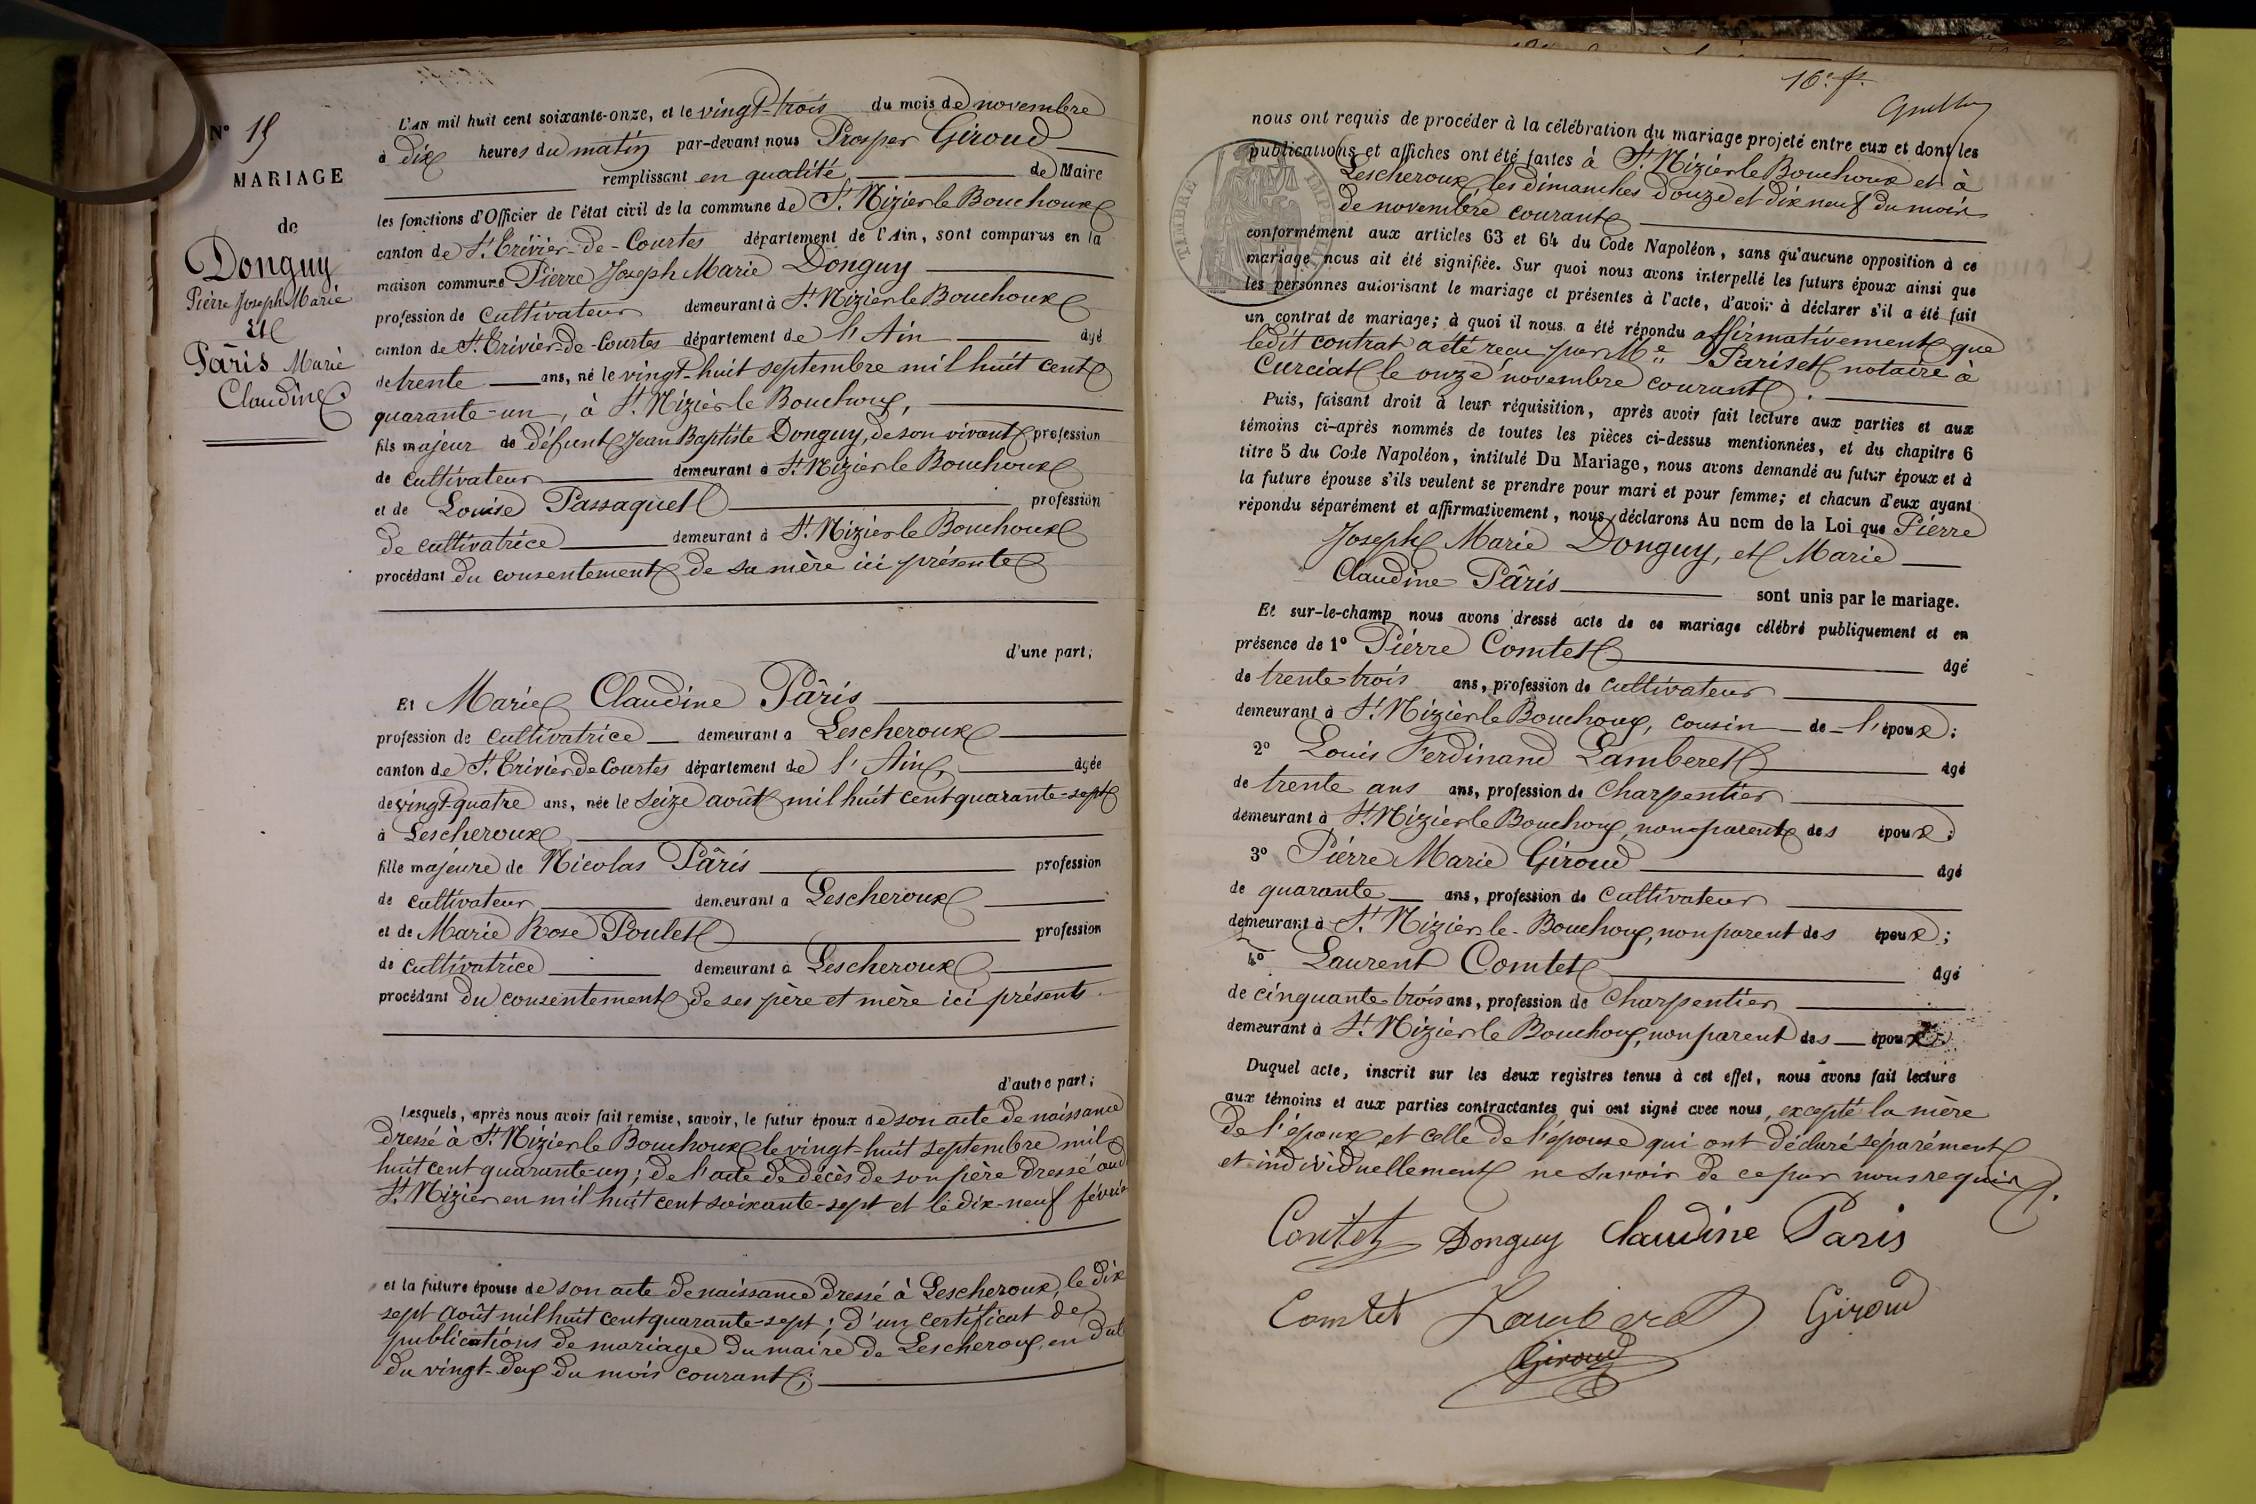 N° 15
MARIAGE
de
Donguy
Pierre Joseph Marie
et
Pâris Marie
Claudine
L'AN mil huit cent soixante-onze, et le vingt-trois du mois de novembre
à dix heures du matin par-devant nous Prosper Giroud
remplissant en qualité de Maire
les fonctions d'Officier de l'état civil de la commune de St Nizier le Bouchoux
canton de St Trivier-de-Courtes département de l'Ain, sont comparus en la
maison commune Pierre Joseph Marie Donguy
profession de cultivateur demeurant à St Nizier le Bouchoux
canton de St Trivier-de-Courtes département de l'Ain âgé
de trente ans, né le vingt-huit septembre mil huit cent
quarante-un, à St Nizier le Bouchoux,
fils majeur de défunt Jean Baptiste Donguy, de son vivant profession
de cultivateur demeurant à St Nizier le Bouchoux
et de Louise Passaquet profession
de cultivatrice demeurant à St Nizier le Bouchoux
procédant du consentement de sa mère ici présente
d'une part;
Et Marie Claudine Pâris
profession de cultivatrice demeurant à Lescheroux
canton de St Trivier de Courtes département de l'Ain, âgée
de vingt-quatre ans, née le seize août mil huit cent quarante-sept
à Lescheroux
fille majeure de Nicolas Pâris profession
de cultivateur demeurant à Lescheroux
et de Marie Rose Poulet profession
de cultivatrice demeurant à Lescheroux
procédant du consentement de ses père et mère ici présents.
d'autre part;
Lesquels, après nous avoir fait remise, savoir, le futur époux de son acte de naissance
dressé à St Nizier le Bouchoux le vingt-huit septembre mil
huit cent quarante-un; de l'acte de décès de son père dressé aud
St Nizier en mil huit cent soixante-sept et le dix-neuf février
et la future épouse de son acte de naissance dressé à Lescheroux, le dix
sept août mil huit cent quarante-sept; d'un certificat de
publications de mariage du maire de Lescheroux, en date
du vingt-deux du mois courant;
16e ft.
nous ont requis de procéder à la célébration du mariage projeté entre eux et dont les
publications et affiches ont été faites à St Nizier le Bouchoux et à
Lescheroux, les dimanches douze et dix neuf du mois
de novembre courant
conformément aux articles 63 et 64 du Code Napoléon, sans qu'aucune opposition à ce
mariage nous ait été signifiée. Sur quoi nous avons interpellé les futurs époux ainsi que
les personnes autorisant le mariage et présentes à l'acte, d'avoir à déclarer s'il a été fait
un contrat de mariage; à quoi il nous a été répondu affirmativement que
ledit contrat a été reçu par Me Pariset notaire à
Curciat le onze novembre courant.
Puis, faisant droit à leur réquisition, après avoir fait lecture aux parties et aux
témoins ci-après nommés de toutes les pièces ci-dessus mentionnées, et du chapitre 6
titre 5 du Code Napoléon, intitulé Du Mariage, nous avons demandé au futur époux et à
la future épouse s'ils veulent se prendre pour mari et pour femme; et chacun d'eux ayant
répondu séparément et affirmativement, nous déclarons Au nom de la Loi que Pierre
Joseph Marie Donguy, et Marie
Claudine Pâris sont unis par le mariage.
Et sur-le-champ nous avons dressé acte de ce mariage célébré publiquement et en
présence de 1° Pierre Comtet âgé
de trente-trois ans, profession de cultivateur
demeurant à St Nizier le Bouchoux, cousin de l'époux;
2° Louis Ferdinand Lamberet âgé
de trente ans ans, profession de Charpentier
demeurant à St Nizier le Bouchoux, non parent des époux;
3° Pierre Marie Giroud âgé
de quarante ans, profession de cultivateur
demeurant à St Nizier-le-Bouchoux, non parent des époux;
4° Laurent Comtet âgé
de cinquante trois ans, profession de Charpentier
demeurant à St Nizier le Bouchoux, non parent des époux.
Duquel acte, inscrit sur les deux registres tenus à cet effet, nous avons fait lecture
aux témoins et aux parties contractantes qui ont signé avec nous, excepté la mère
de l'époux et celle de l'épouse qui ont déclaré séparément
et individuellement ne savoir de ce par nous requis.
Comtet Donguy Claudine Paris
Comtet Lamberet Giroud
Giroud
TIMBRE IMPERIAL